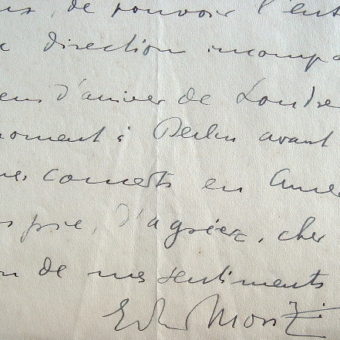 de pouvoir l'ent
direction incompa
d'arriver de Londre
moment à Berlin avant
concerts en Amé
prie, d'agréer, cher
de mes sentiments